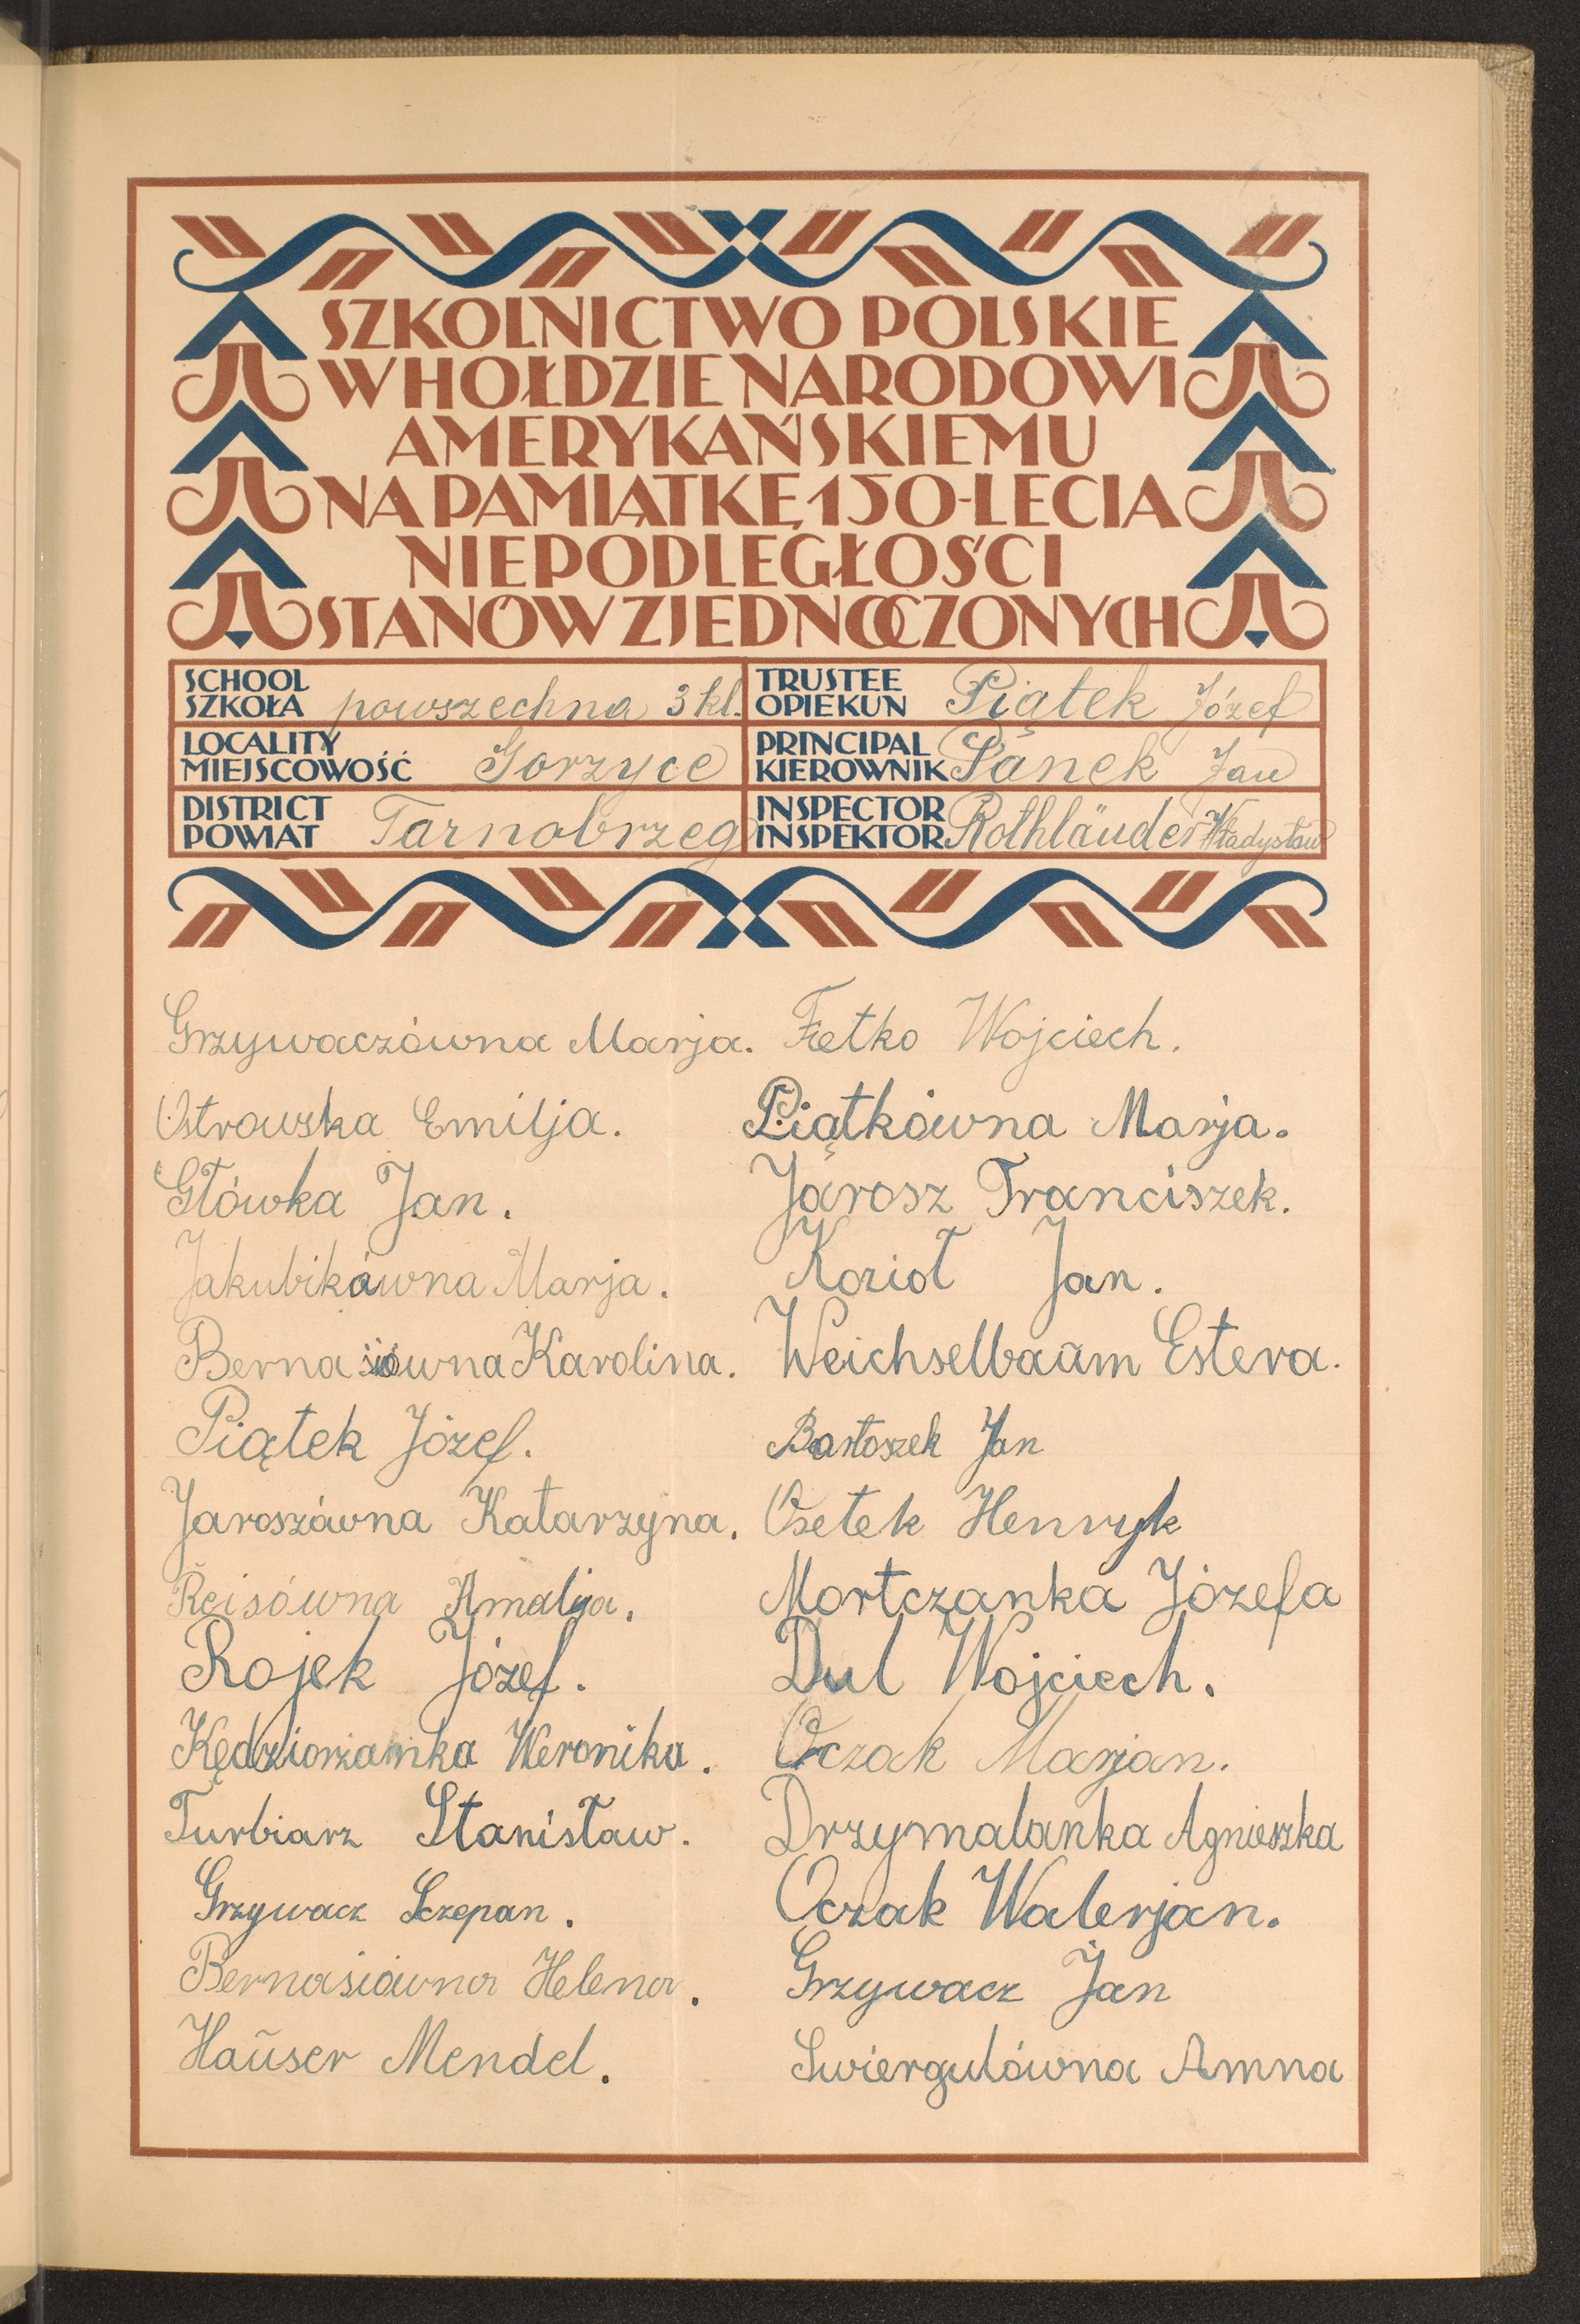 SZKOLNICTWO POLSKIE
W HOŁDZIE NARODOWI
AMERYKAŃSKIEMU
NA PAMIĄTKĘ 150-LECIA
NIEPODLEGŁOŚCI
STANÓW ZJEDNOCZONYCH
SCHOOL
SZKOŁA powszechna 3 kl.
TRUSTEE
OPIEKUN Piątek Józef
LOCALITY
MIEJSCOWOŚĆ Gorzyce
PRINCIPAL
KIEROWNIK Panek Jan
DISTRICT
POWIAT Tarnobrzeg
INSPECTOR
INSPEKTOR Rothländer Władysław
Grzywaczówna Marja.
Ostrowska Emilja.
Główka Jan.
Jakubikówna Marja.
Bernasiówna Karolina.
Piątek Józef.
Jaroszówna Katarzyna.
Reisówna Amalija.
Rojek Józef.
Kędziorzanka Weronika.
Turbiarz Stanisław.
Grzywacz Sczepan.
Bernasiówna Helena.
Haŭser Mendel.
Fetko Wojciech.
Piątkówna Marja.
Jarosz Franciszek.
Kozioł Jan.
Weichselbaŭm Estera.
Bartoszek Jan
Osetek Henryk
Mortczanka Józefa
Dul Wojciech.
Oczak Marjan.
Drzymalanka Agnieszka
Oczak Walerjan.
Grzywacz Jan
Swiergulówna Amna